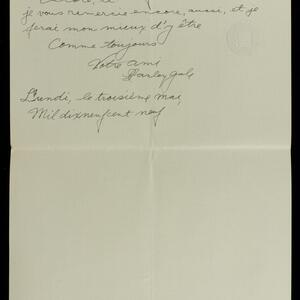 je vous remercie encore, aussi, et je
ferai mon mieux d'y être
Comme toujours
Votre ami
Lundi, le troisième mai,
Mil dixneufcent neuf